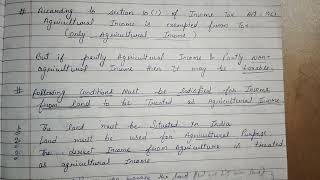 # According to section 10(1) of Income Tax Act 1961
Agricultural Income is exempted from Tax
(only Agricultural Income)
But if partly Agricultural Income & Partly non-
agricultural Income then it may be taxable.
# Following Conditions Must be Satisfied for Income
from land to be Treated as Agricultural Income
1. The land must be Situated in India
2. Land must be used for Agricultural Purpose
3. The direct Income from Agriculture is treated
as agricultural Income
the land